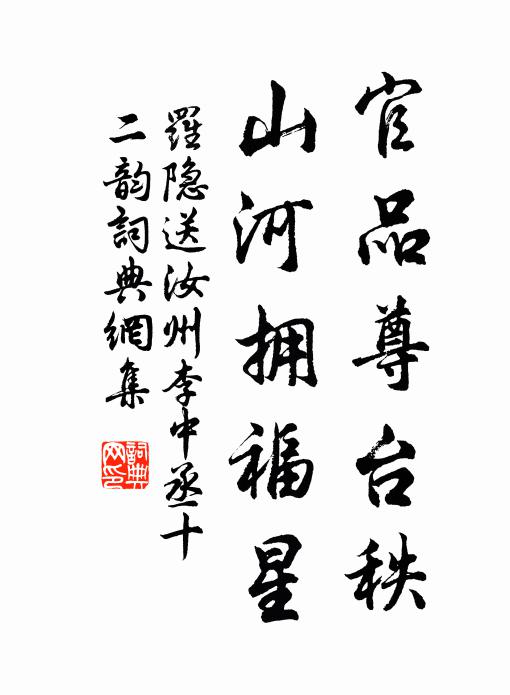 官品尊台秩
山河拥福星
羅隐送汝州李中丞十
二韵詞典網集
詞典网印